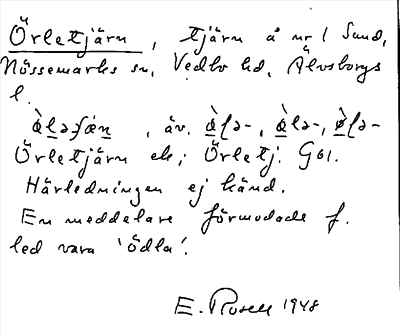 Örletjärn, tjärn å nr 1 Sund,
Nössemarks sn, Vedbo hd, Älvsborgs
l.
, äv.
Örletjärn ek; Örletj. G61.
Härledningen ej känd.
En meddelare förmodade f.
led vara 'ödla'.
E. Rosell 1948